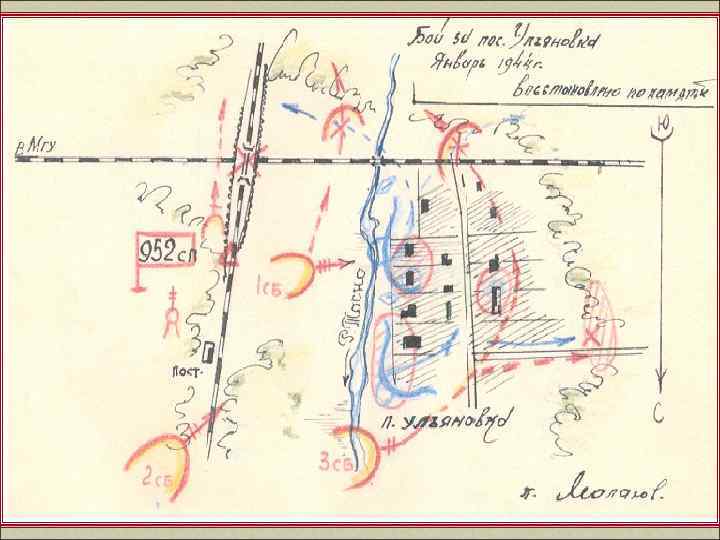 Бой за пос. Ульяновка
Январь 1944г.
Восстановлено по памяти
Ю
в Мгу
952 сп
1 сб
р. Тосно
Пост.
п. Ульяновка
С
2 сб
3 сб
п.